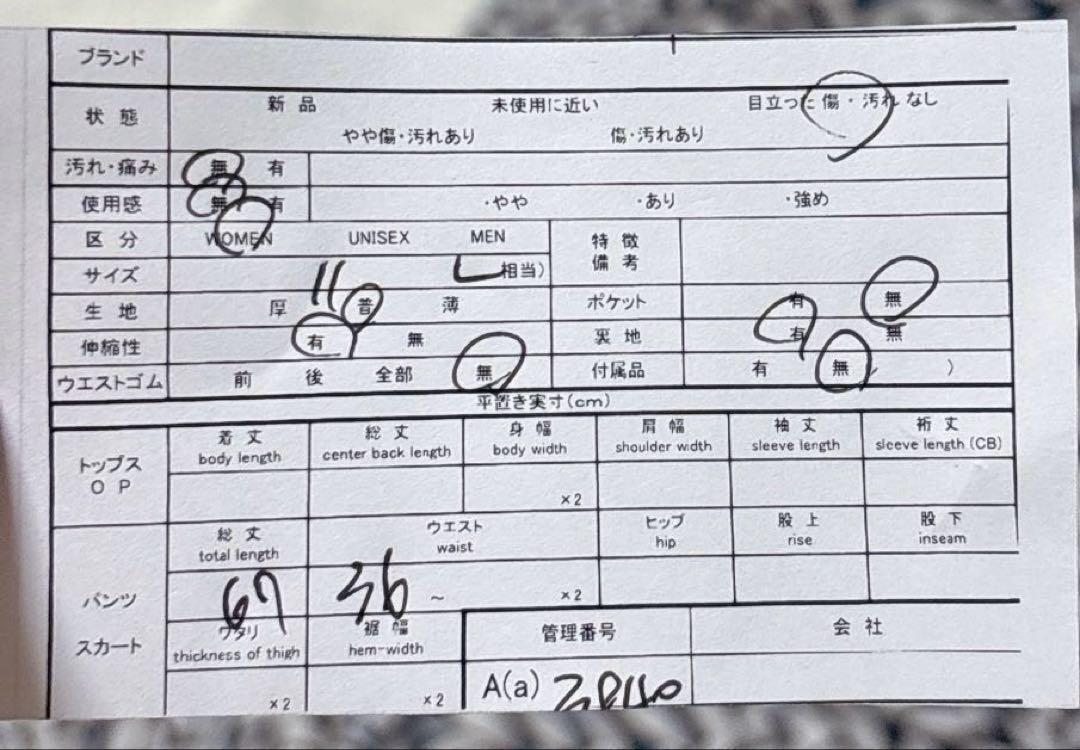 ブランド
状態 新品 未使用に近い 目立った傷・汚れなし
やや傷・汚れあり 傷・汚れあり
汚れ・痛み 無 有
使用感 無 有 ・やや ・あり ・強め
区分 WOMEN UNISEX MEN 特徴
備考
サイズ 11 L 相当)
生地 厚 普 薄 ポケット 有 無
伸縮性 有 無 裏地 有 無
ウエストゴム 前 後 全部 無 付属品 有 無 )
平置き実寸(cm)
トップス
OP
着丈 総丈 身幅 肩幅 袖丈 裄丈
body length center back length body width shoulder width sleeve length sleeve length (CB)
×2
パンツ
スカート
総丈 ウエスト ヒップ 股上 股下
total length waist hip rise inseam
67 36 ~ ×2
ワタリ 裾幅 管理番号 会社
thickness of thigh hem-width
×2 ×2 A(a)